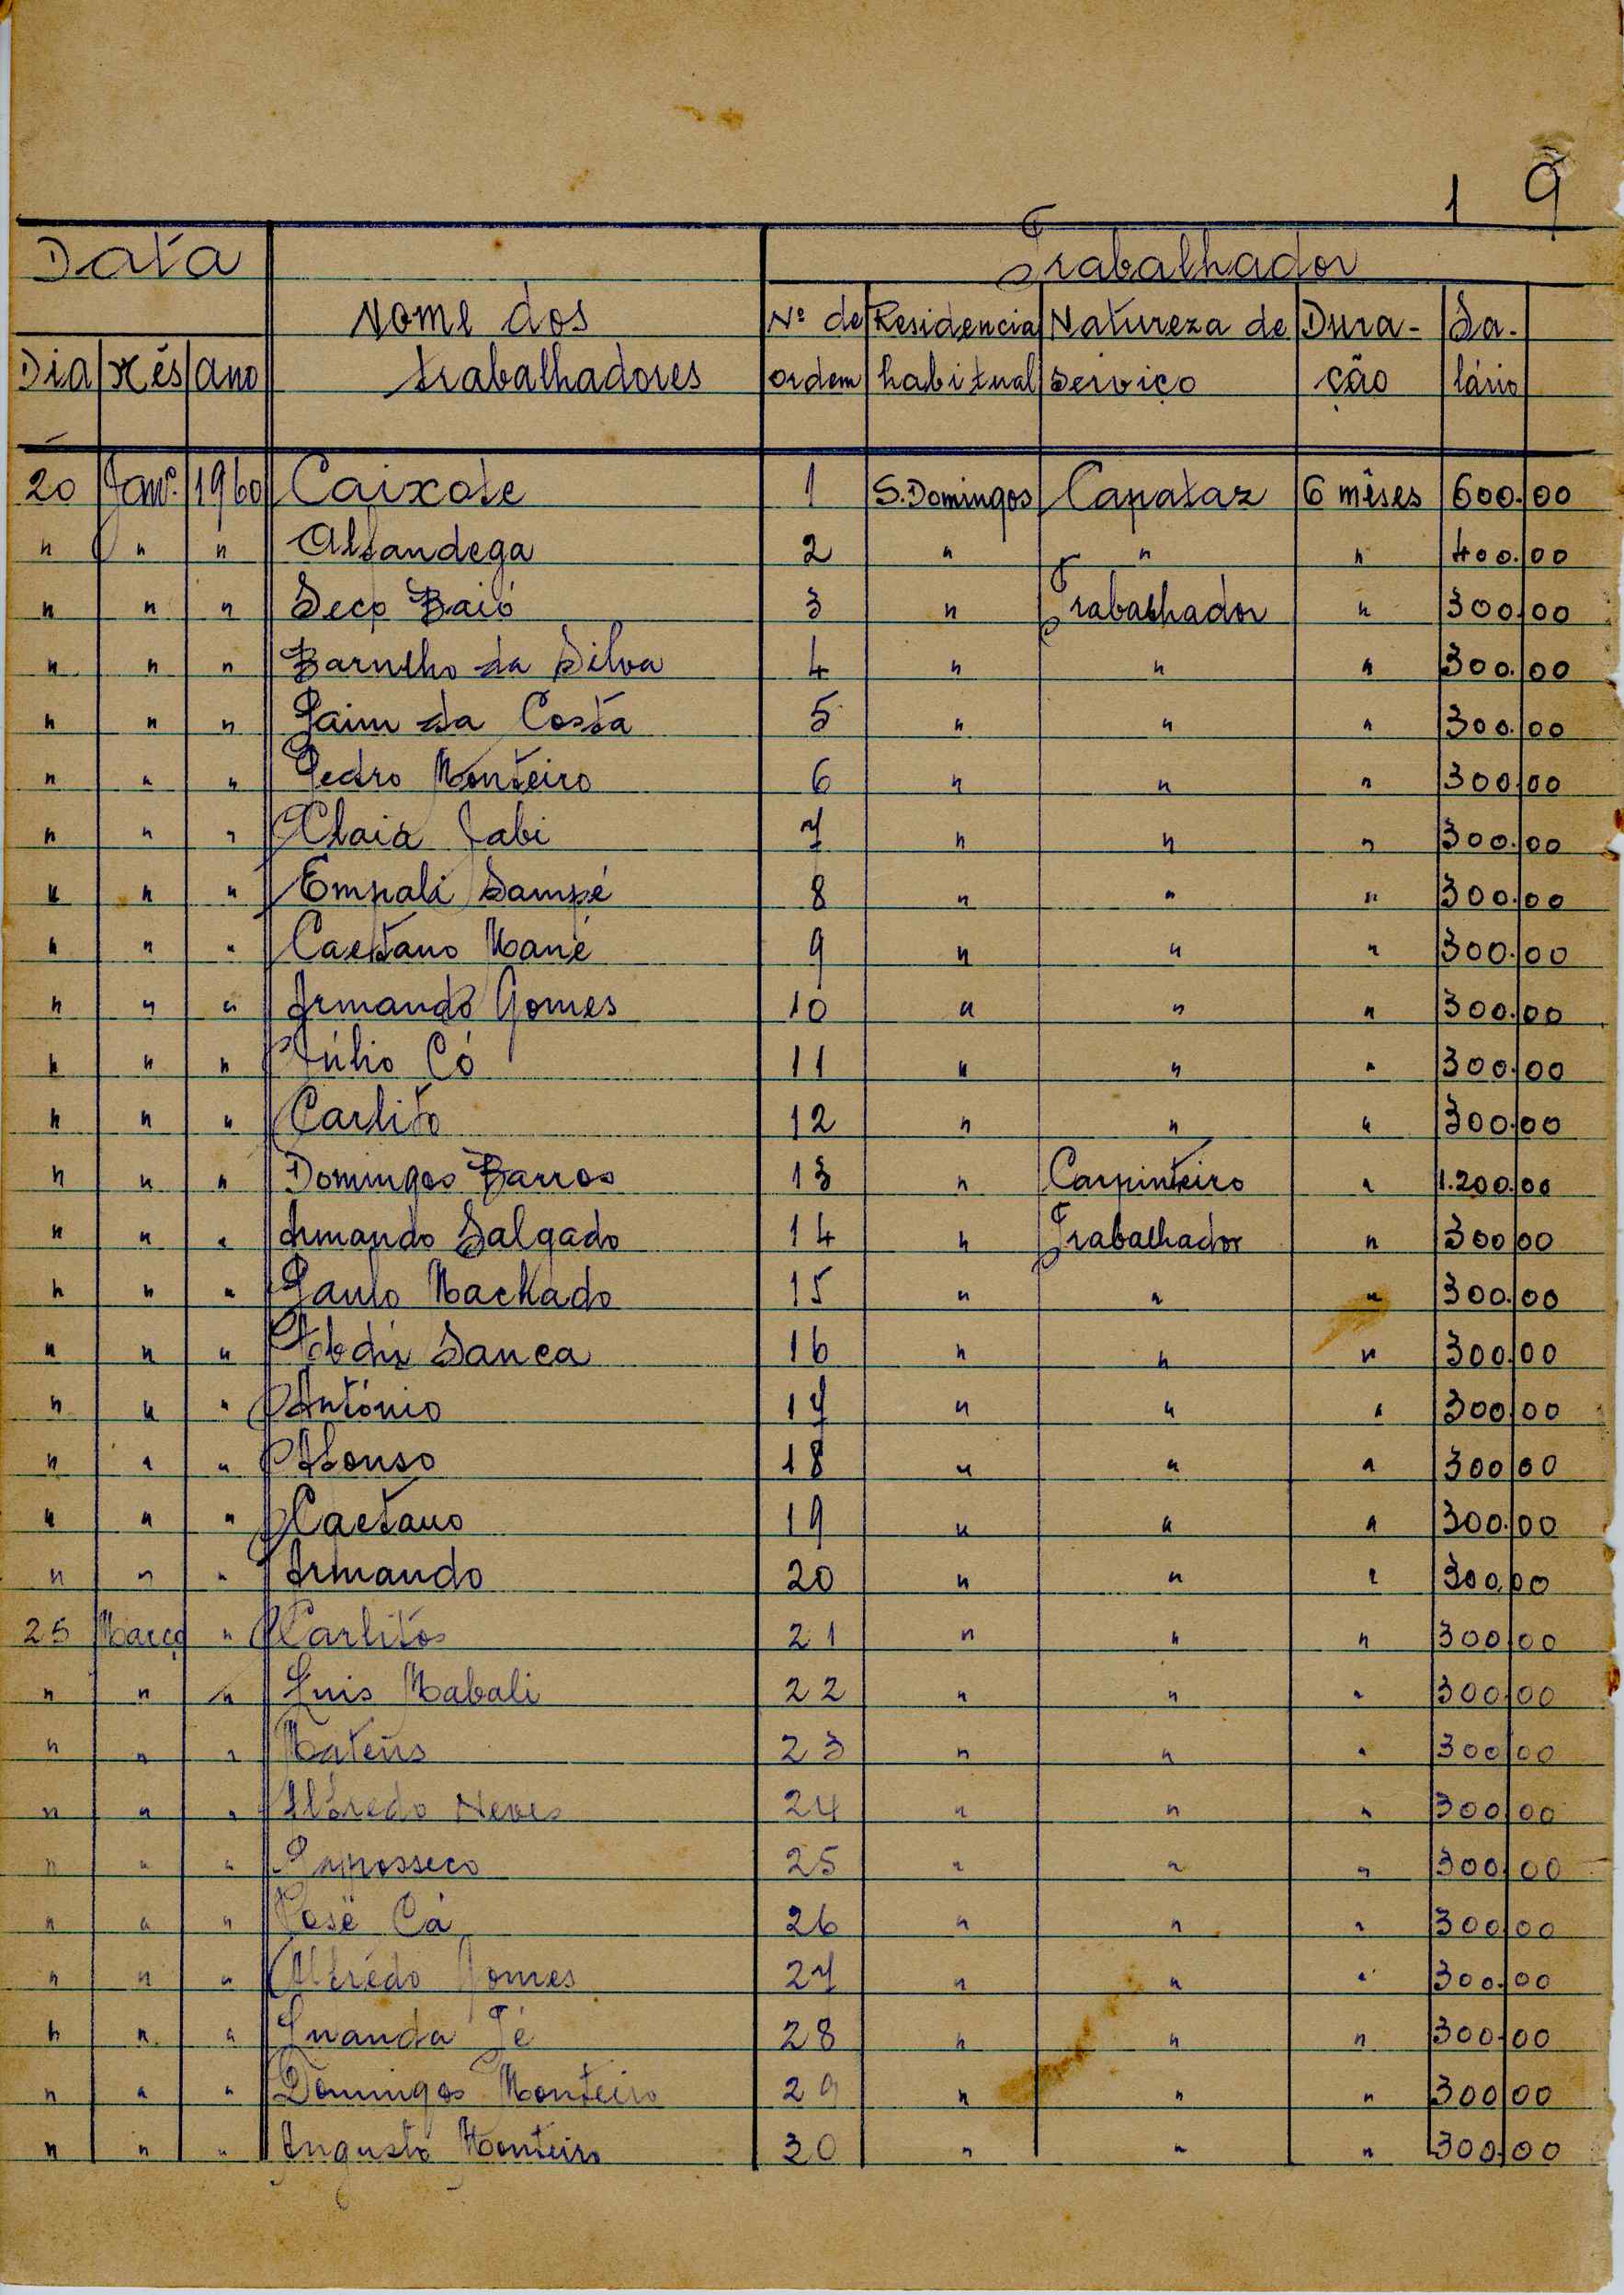 19
Data Trabalhador
Nome dos Nº de Residencia Natureza de Dura- Sa-
Dia Mês ano trabalhadores ordem habitual serviço ção lário
20 Janº. 1960 Caixote 1 S. Domingos Capataz 6 mêses 600.00
" " " Alfandega 2 " " " 400.00
" " " Seco Baió 3 " Trabalhador " 300.00
" " " da Silva 4 " " " 300.00
" " " Jaim da Costa 5 " " " 300.00
" " " Pedro Monteiro 6 " " " 300.00
" " " Jabi 7 " " " 300.00
" " " Empali Sampé 8 " " " 300.00
" " " Caetano Mané 9 " " " 300.00
" " " Armando Gomes 10 " " " 300.00
" " " Júlio Có 11 " " " 300.00
" " " Carlito 12 " " " 300.00
" " " Domingos Barros 13 " Carpinteiro " 1.200.00
" " " Armando Salgado 14 " Trabalhador " 300.00
" " " Paulo Machado 15 " " " 300.00
" " " Sanca 16 " " " 300.00
" " " António 17 " " " 300.00
" " " Afonso 18 " " " 300.00
" " " Caetano 19 " " " 300.00
" " " Armando 20 " " " 300.00
25 Março " Carlitos 21 " " " 300.00
" " " Luis Mabali 22 " " " 300.00
" " " Mateus 23 " " " 300.00
" " " Alfredo Neves 24 " " " 300.00
" " " 25 " " " 300.00
" " " José Cá 26 " " " 300.00
" " " Alfrédo Gomes 27 " " " 300.00
" " " Luanda Té 28 " " " 300.00
" " " Domingos Monteiro 29 " " " 300.00
" " " Augusto Monteiro 30 " " " 300.00